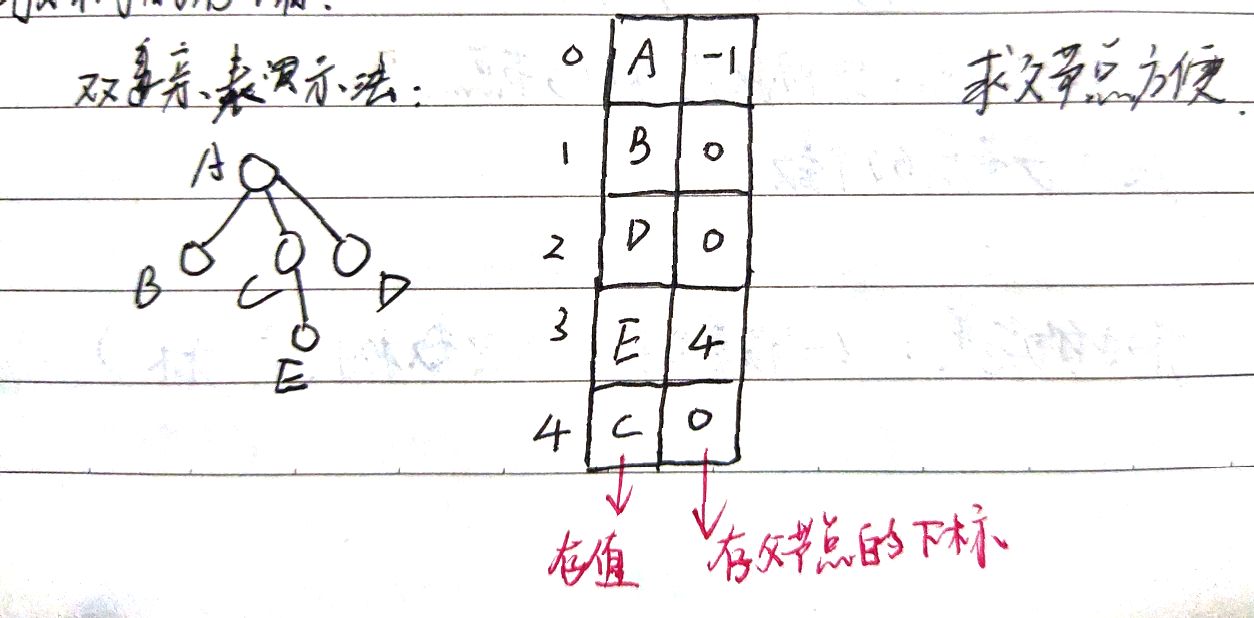 双亲表示法:
求父节点方便.
0 A -1
1 B 0
2 D 0
3 E 4
4 C 0
A
B C D
E
存值
存父节点的下标